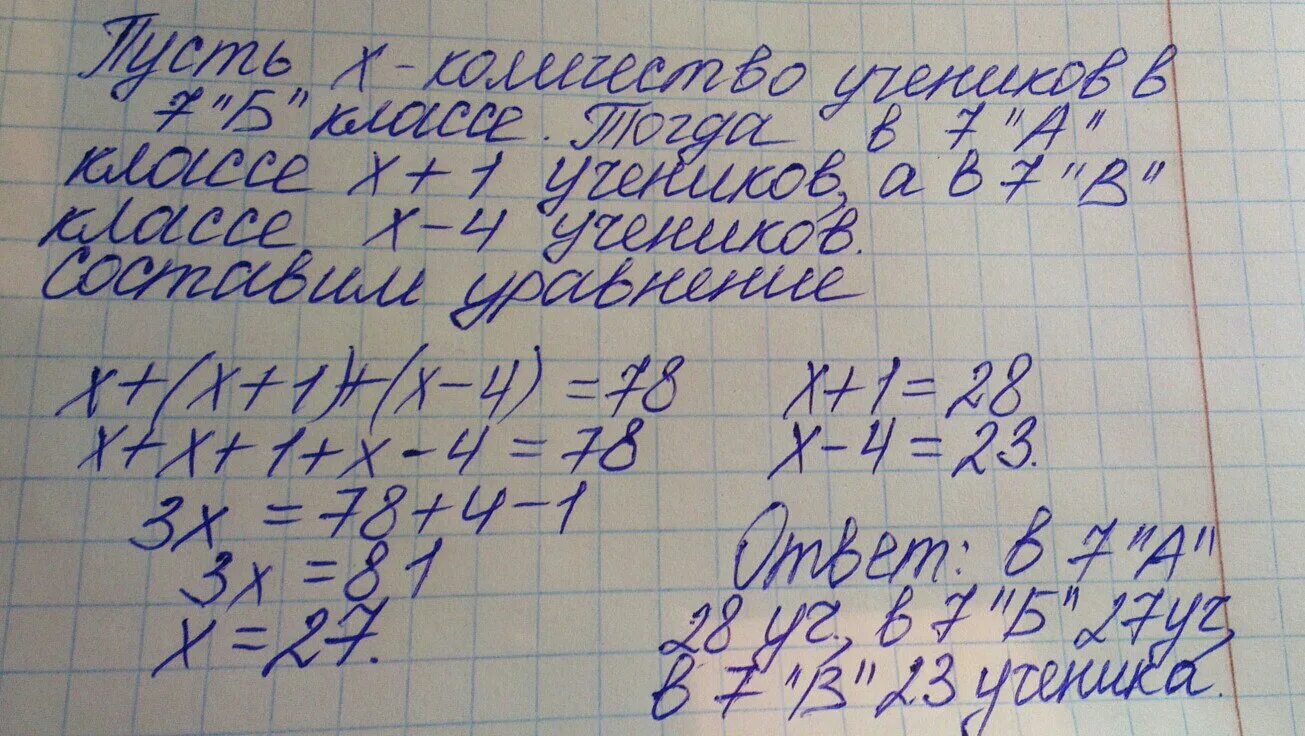 Пусть х - количество учеников в
7 "Б" классе. Тогда в 7 "А"
классе х + 1 учеников, а в 7 "В"
классе х - 4 учеников.
Составим уравнение
х+(х+1)+(х-4) = 78
х+х+1+х-4 = 78
3х = 78+4-1
3х = 81
х = 27.
х+1 = 28
х-4 = 23.
Ответ: в 7 "А"
28 уч., в 7 "Б" 27 уч,
в 7 "В" 23 ученика.